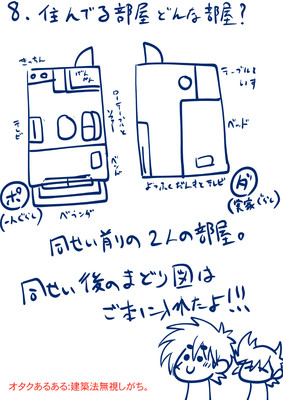 8. 住んでる部屋どんな部屋?
きっちん
げんかん
テレビ
ローテーブルと
ソファー
ベッド
ポ
(一人ぐらし)
ベランダ
テーブルと
いす
ベッド
ようふくだんすとテレビ
ダ
(実家ぐらし)
同せい前の2人の部屋。
同せい後のまどり図は
ご本に入れたよ!!!
オタクあるある:建築法無視しがち。